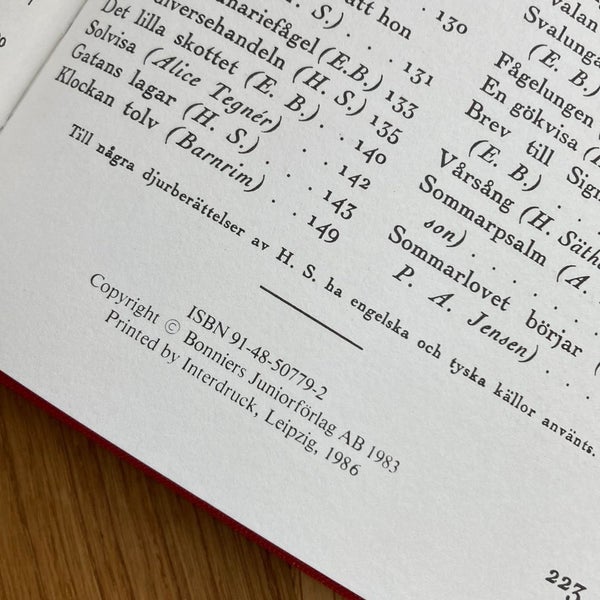 130
att hon
H. S.) . . . 131
nariefågel (E.B.) 133
iversehandeln (H. S.) 135
Det lilla skottet (E. B.) . . 140
Solvisa (Alice Tegnér) . 142
Gatans lagar (H. S.) . . 143
Klockan tolv (Barnrim) . . . 149
valan
Svalunga
(E. B.)
Fågelungen
En gökvisa (E. B.
Brev till Sign
(E. B.) .
Vårsång (H. Säthe
son)
Sommarpsalm (A.
Sommarlovet börjar (
P. A. Jensen) . . .
Till några djurberättelser av H. S. ha engelska och tyska källor använts.
ISBN 91-48-50779-2
Copyright © Bonniers Juniorförlag AB 1983
Printed by Interdruck, Leipzig, 1986
223